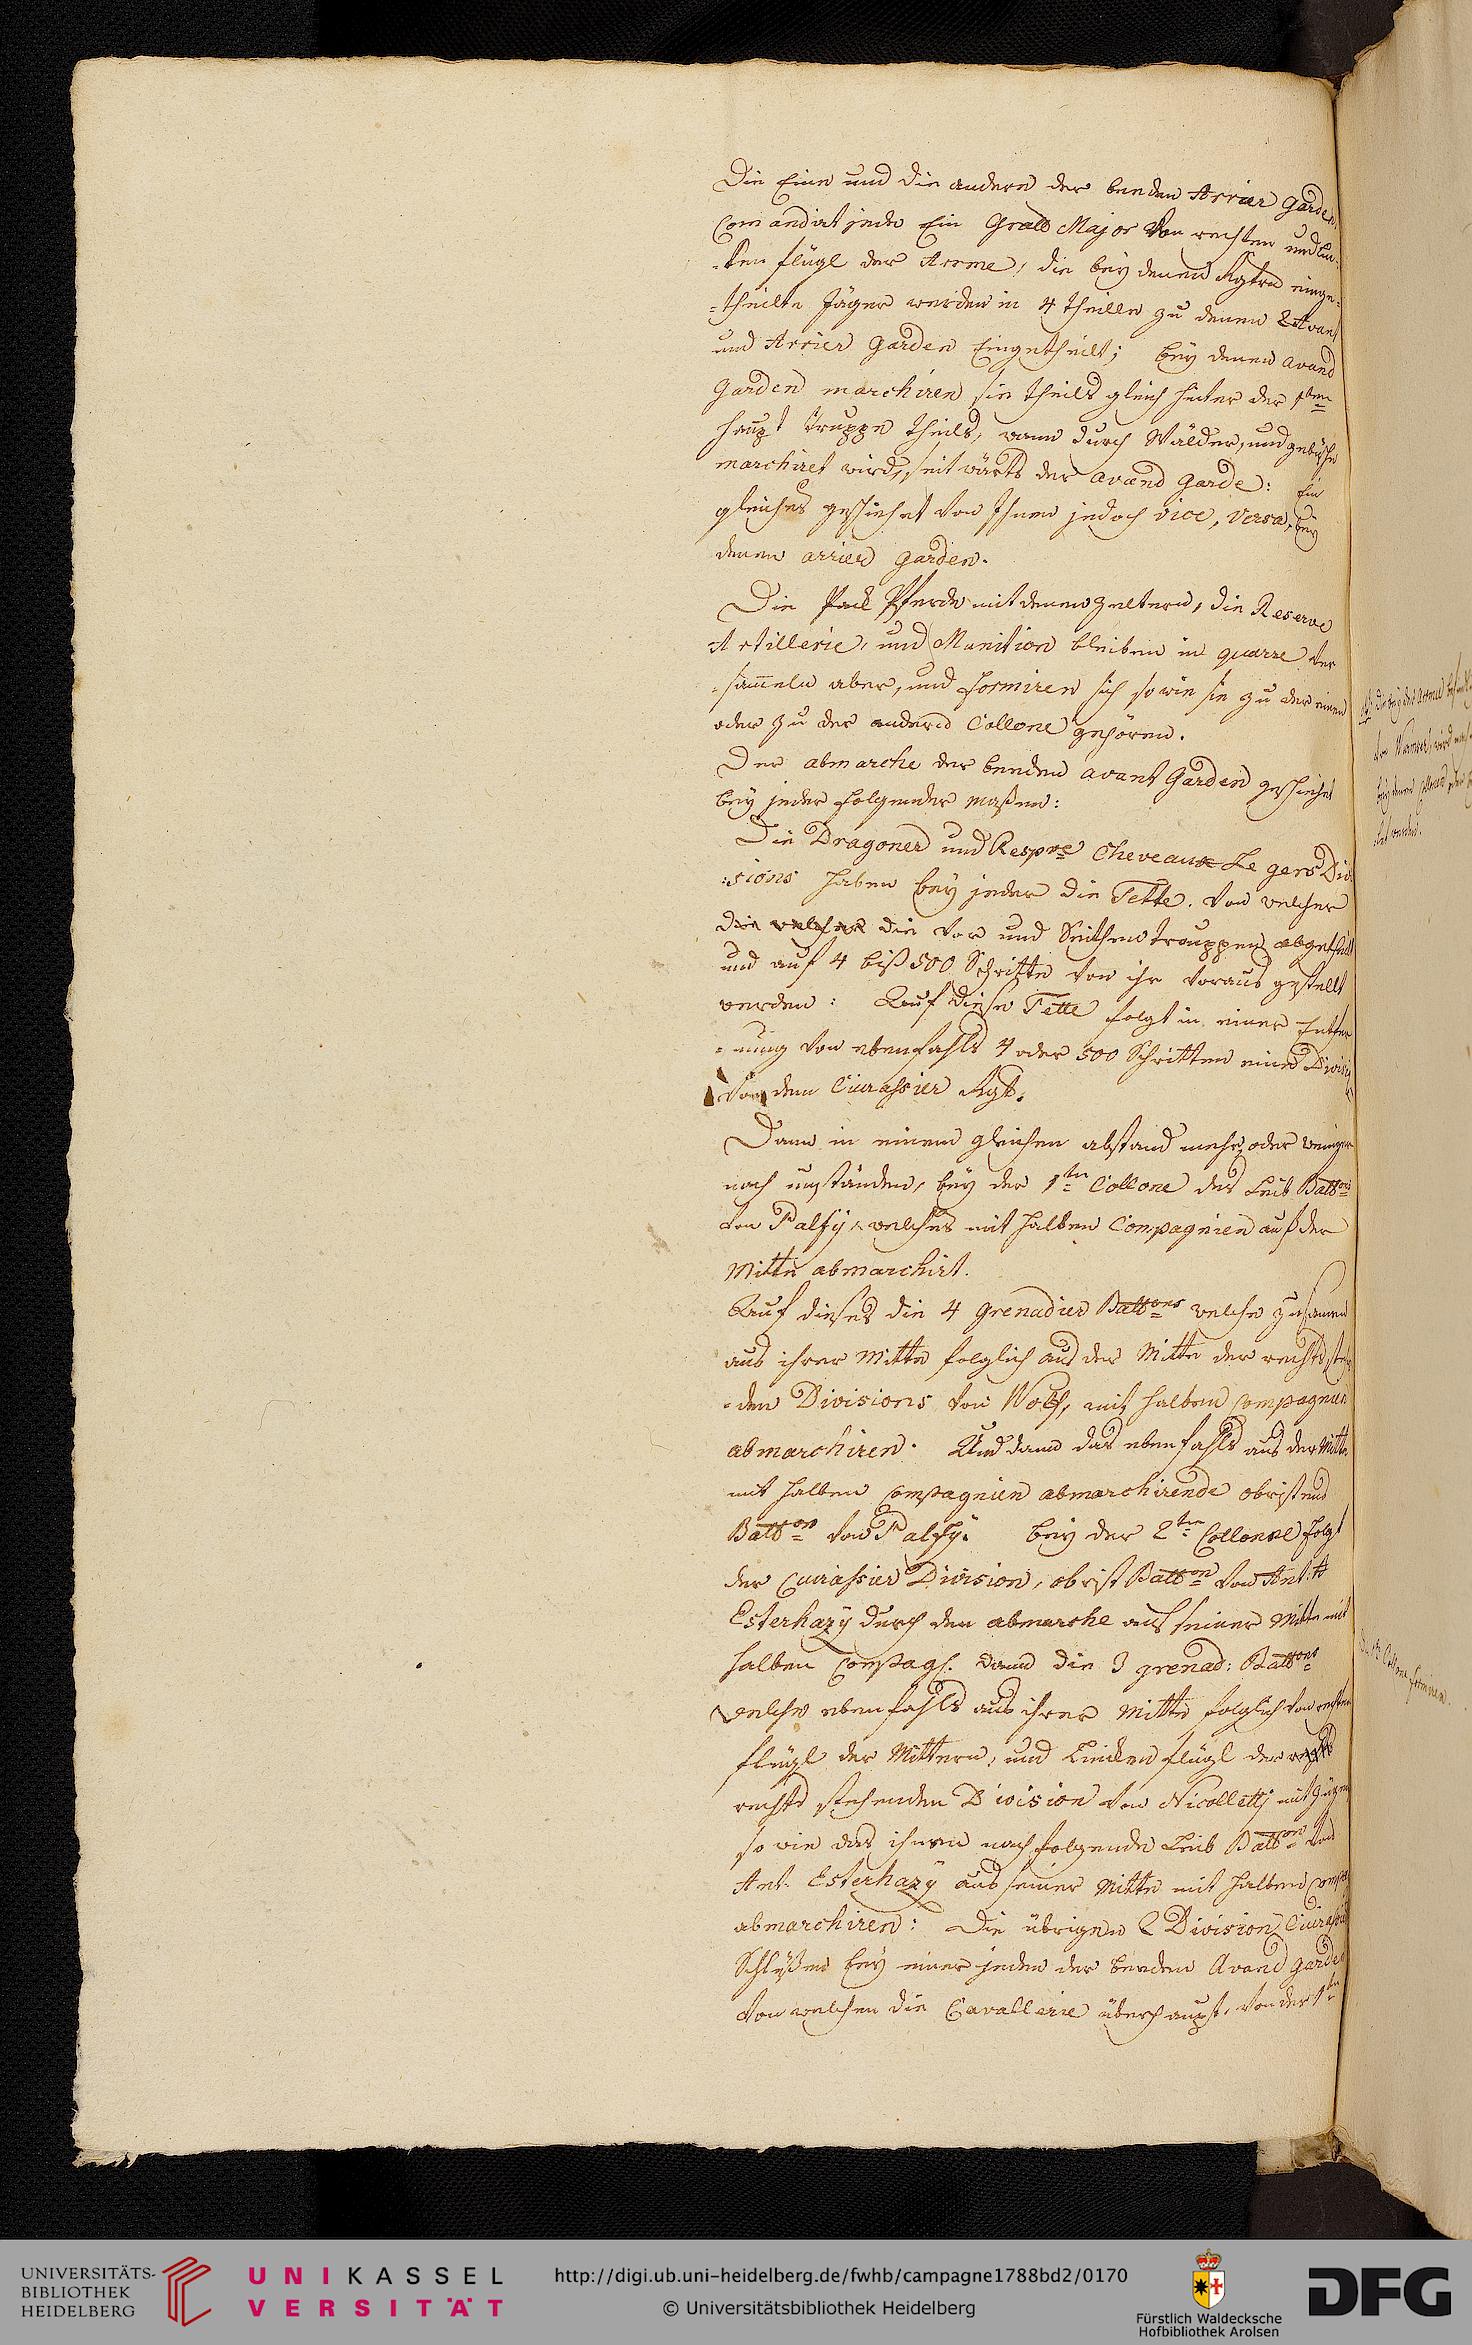 Die Eine und die andere der beeden Arrier Garden
Comandirt jede Ein Grall Major Von rechten und Lin-
-ken flügl der Armee, die bey denen Rgtrn einge-
-theilte Jäger werden in 4 theille zu denen 2 Avant
und Arrier Garden Eingetheilt; bey denen avand
Garden marchiren sie theils gleich hinter der 1ten
haupt Truppe theils, wann durch Wälder, und gebüsche
marchiret wird, seit wärts der avand Garde: Ein
gleiches geschiehet von Ihnen jedoch vice, versa, bey
denen arrier Garden.
Die Pack Pferde mit denen Zeltern, die Reserve
Artillerie, und Munition bleiben in quarre ver
-sammeln aber, und formiren sich so wie sie zu der einen
oder zu der anderen Collone gehören.
Der abmarche der beeden avant Garden geschiehet
bey jeder folgender maßen:
Die Dragoner und Respve Cheveaux Le gers Divi
-sions haben bey jeder die Tette. von welcher
die welcher die Vor und Seithen trouppen abgetheilt
und auf 4 biß 500 Schritte von ihr voraus gestellt
werden: Auf diese Tette folgt in einer Entfer
-nung von ebenfahls 4 oder 500 Schritten eine Divisi
von dem Cürassier Rgt.
Dann in einem gleichen abstand mehr oder weniger
nach umständen, bey der 1ten Collone das Leib Battons
von Palfy, welches mit halben Compagnien auß der
Mitte abmarchirt.
Auf dieses die 4 Grenadier Battons welche zusamen
aus ihrer Mitte folglich aus der Mitte der rechts steh
-den Divisions von Wolf, mit halben Compagnien
abmarchiren. Und dann das ebenfahls aus der Mitte
mit halben Compagnien abmarchirende obristens
Batton von Palfy. bey der 2ten Collonne folgt
der Curassier Division, obrist Batton von Ant:
Esterhazy durch den abmarche aus seiner Mitte mit
halben Compag. dann die 3 grenad: Battons
welche ebenfahls aus ihrer Mitte folglich von rechten
flügl der Mittern, und Lincken flügl der rechts
rechts stehenden Division von Nicolletti mit Zügen
so wie das ihnen nachfolgende Leib Batton von
Ant. Esterhazy aus seiner Mitte mit halben Comp
abmarchiren: Die übrigen 2 Division Cüirassir
Schlüßen bey einer jeden der beeden Avand Garden
von welchen die Cavallerie überhaupt, von der 1ten
die 1te Collone formiren.
UNIVERSITÄTS-
BIBLIOTHEK
HEIDELBERG
UNIKASSEL
VERSITÄT
http://digi.ub.uni-heidelberg.de/fwhb/campagne1788bd2/0170
© Universitätsbibliothek Heidelberg
Fürstlich Waldecksche
Hofbibliothek Arolsen
DFG